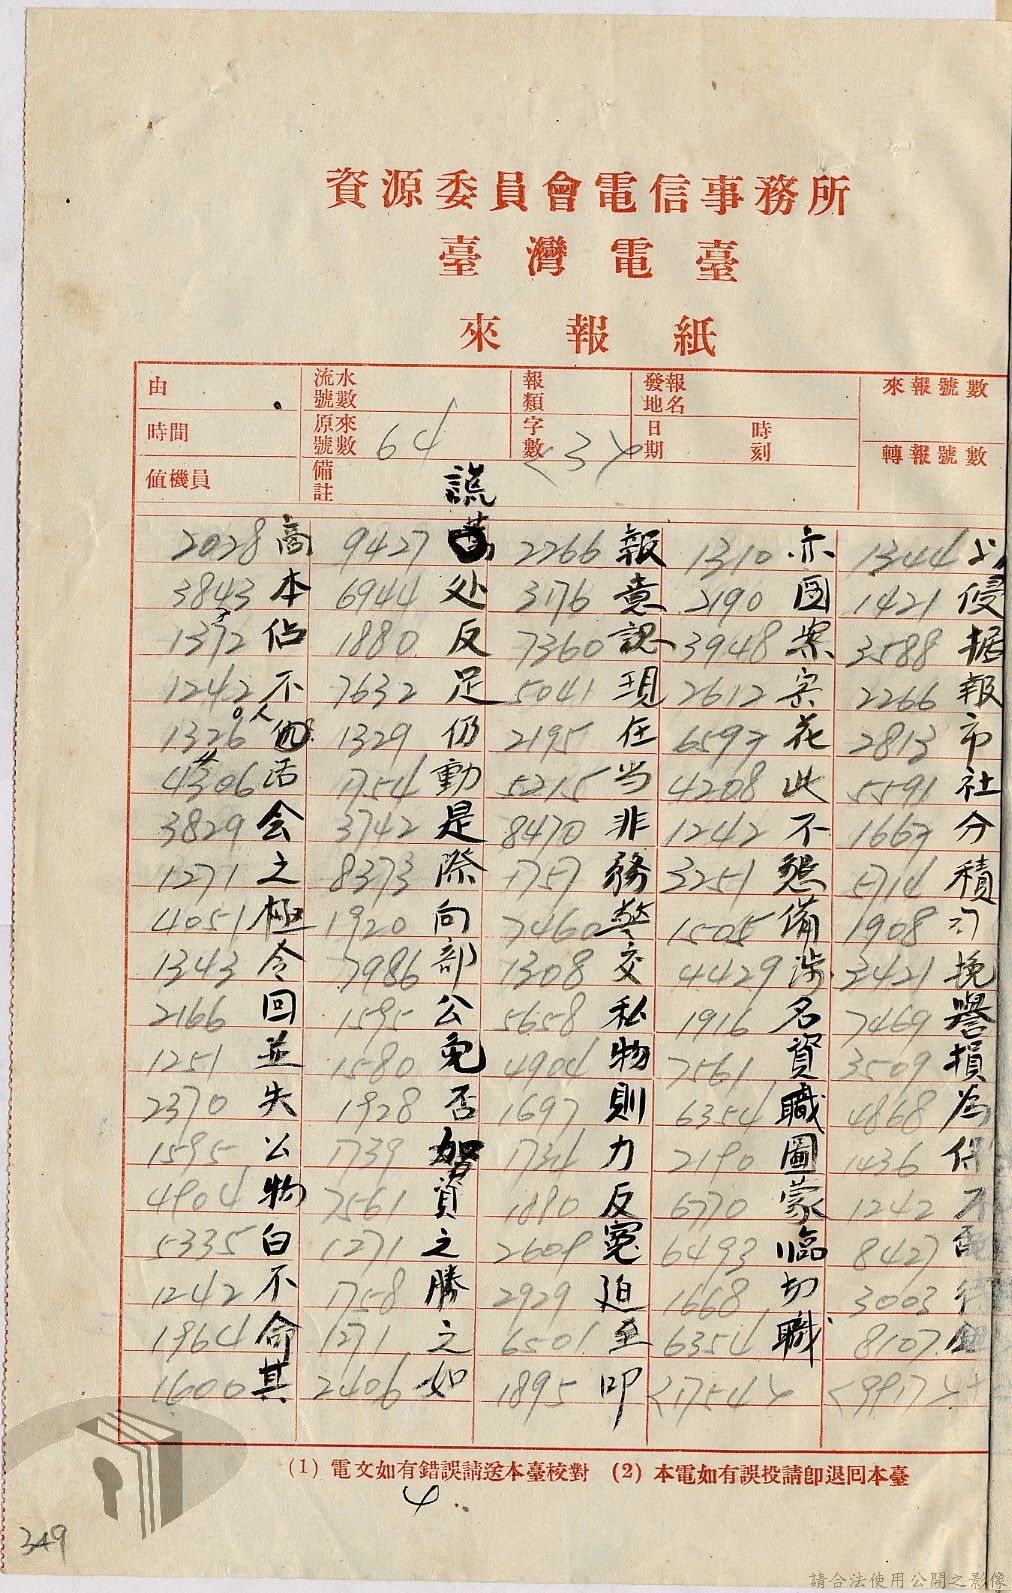 資源委員會電信事務所
臺灣電臺
來報紙
由
流水號數
報類
發報地名
來報號數
時間
原來號數 64
字數
日期
時刻
轉報號數
值機員
備註
2028 商 9427 謊 2266 報 1310 亦 1344 以
3843 本 6944 处 3176 意 2190 図 1421 侵
1372 佔 1880 反 7360 認 3948 案 3588 据
1242 不 7632 足 5041 現 2612 宗 2266 報
1326 他 1329 仍 2195 在 6597 花 2813 市
4306 活 1754 動 5215 当 4208 此 5591 社
3829 会 3742 是 8470 非 1242 不 1667 分
1271 之 8373 際 1757 務 3251 懇 5714 積
4051 極 1920 向 7460 警 1505 備 1908
1343 令 7986 部 1308 交 4429 涉 3421 挽
2166 回 1595 公 5658 私 1916 名 7469 譽
1251 並 1580 免 4904 物 7561 資 3509 損
2370 失 1928 否 1697 則 6354 職 4868 為
1595 公 1739 如 1734 力 2190 圖 1436 保
4904 物 7561 資 1890 反 6770 蒙 1242 不
5335 白 1271 之 2609 冤 6493 臨 8427
1242 不 1758 勝 2929 迫 1668 切 3003
1964 命 1271 之 6501 至 6354 職 8107
1600 其 2406 如 1895 叩 1754 9917
(1) 電文如有錯誤請送本臺校對 (2) 本電如有誤投請卽退囘本臺
349
請合法使用公開之影像